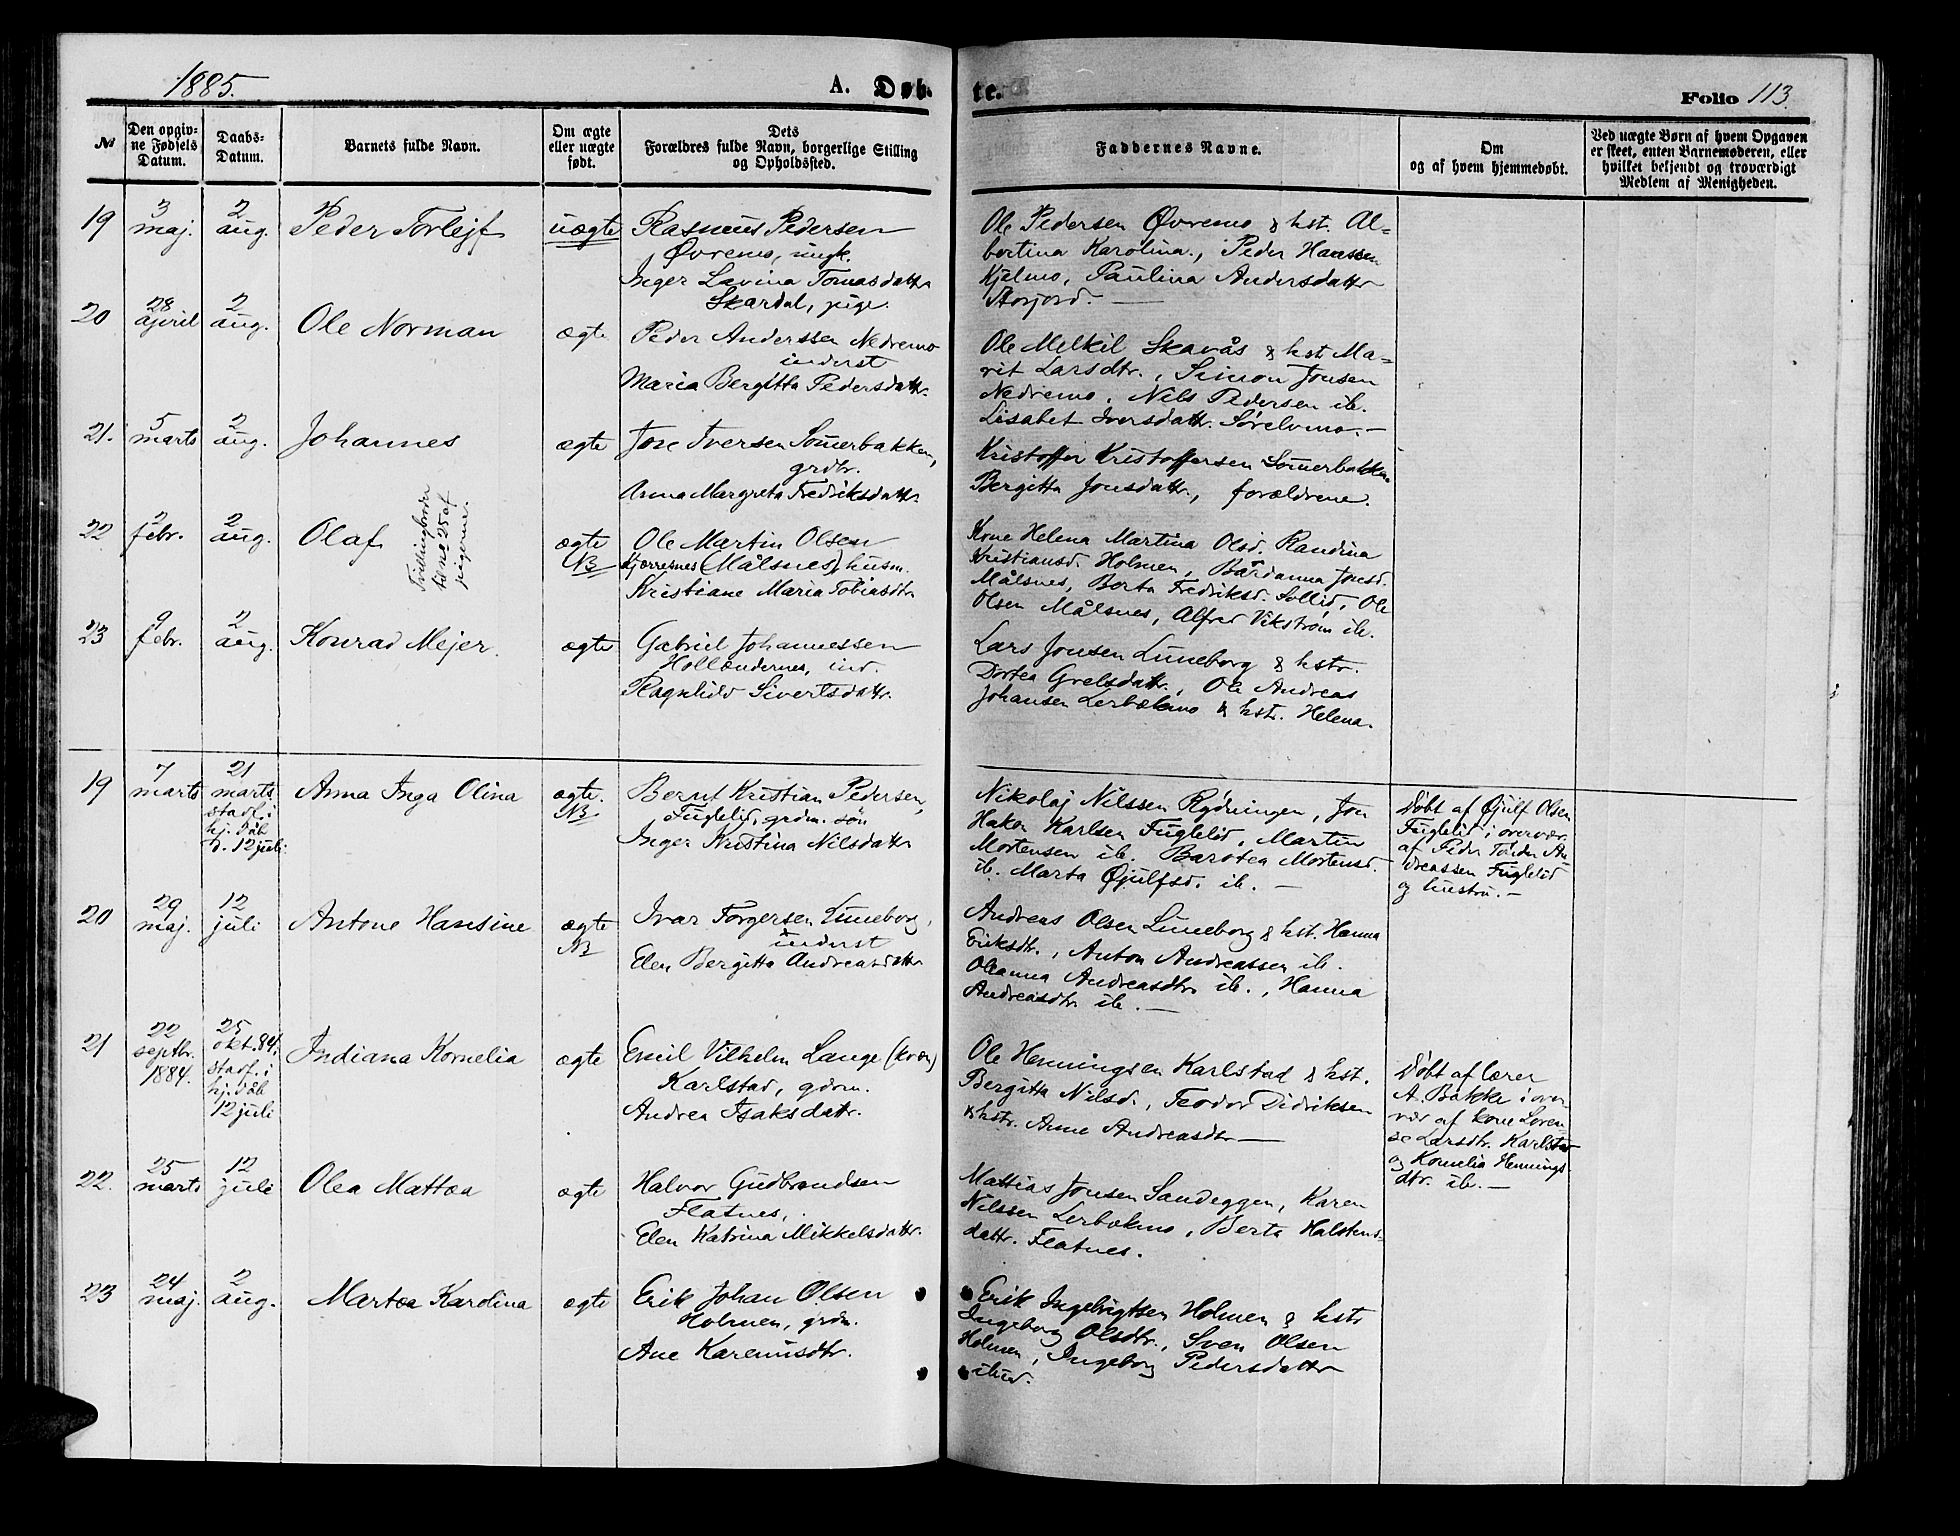 1885.
A. Døb-
te.
Folio 113.
№
Den opgiv-
ne Fødsels
Datum.
Daabs-
Datum.
Barnets fulde Navn.
Om ægte
eller uægte
født.
Dets
Forældres fulde Navn, borgerlige Stilling
og Opholdssted.
Faddernes Navne.
Om
og af hvem hjemmedøbt.
Ved uægte Børn af hvem Opgaven
er skeet, enten Barnemoderen, eller
hvilket bekjendt og troværdigt
Medlem af Menigheden.
19
3
maj.
2
aug.
Peder Torlejf
uægte
Rasmus Pedersen
Øvremo, ungk.
Inger Lavina Tomasdattr
Skardal, pige.
Ole Pedersen Øvremo & hst. Al-
bertina Karolina., Peder Hanssen
Kjelmo, Paulina Andersdattr
Storjord. —
20
28
april
2
aug.
Ole Norman
ægte
Peder Anderssen Nedremo
inderst
Maria Bergitta Pedersdattr.
Ole Melkil Skavås & hst Ma-
rit Larsdtr., Simon Jonsen
Nedremo, Nils Pedersen ib.
Lisabet Iversdattr. Sørelvmo. —
21.
5
marts
2
aug.
Johannes
ægte
Jon Iversen Somerbakken,
grdbr.
Anna Margreta Fredriksdattr.
Kristoffer Kristoffersen Somerbakken
Bergitta Jonsdattr., forældrene.
22
2
febr.
2
aug.
Olaf
Tvillingbroder
til no 25 af
pigerne.
ægte
NB
Ole Martin Olsen
Kjerresnes (Målsnes), husm.
Kristiane Maria Tobiasdtr
Kone Helena Martina Olsd. Randina
Kristiansd. Holmen, Bårdanna Jonsd.
Målsnes, Berta Fredriksd. Sollid, Ole
Olsen Målsnes, Alfred Vikstrøm ib.
23
9
febr.
2
aug.
Konrad Mejer.
ægte
Gabriel Johannessen
Hollendernes, ind.
Ragnhild Sivertsdattr.
Lars Jonsen Luneborg & hstr.
Dortea Grelsdattr., Ole Andreas
Johansen Lerbekmo & hstr. Helena.
19
7
marts
21
marts
stadf. i
hj. dåb
d. 12 juli
Anna Inga Olina
ægte.
NB
Bernt Kristian Pedersen,
Fuglelid, grdm. søn
Inger Kristina Nilsdattr
Nikolaj Nilssen Rydningen, Jon
Hakon Karlsen Fuglelid, Martin
Mortensen ib. Barotea Mortensd.
ib. Marta Øjulfsd. ib. —
Døbt af Øjulf Olsen
Fuglelid i overvær.
af Peder Tårder An
dreassen Fuglelid
og hustru. —
20
29
maj.
12
juli
Antone Hansine
ægte
NB
Ivar Torgersen Luneborg,
inderst
Elen Bergitta Andreasdattr
Andreas Olsen Luneborg & hst. Hanna
Eriksdtr., Anton Andreassen ib.
Oleanna Andreasdtr ib., Hanna
Andreasdtr ib. —
21
22
septbr.
1884.
25
okt. 84.
stadf. i
hj. dåb
12 juli
Indiana Kornelia
ægte
Emil Vilhelm Lange (kven)
Karlstad, gdm.
Andrea Isaksdattr.
Ole Henningsen Karlstad & hst.
Bergitta Nilsd., Teodor Didriksen
& hstr. Anne Andreasdtr —
Døbt af lærer
A. Bakke i over
vær af kone Loren-
se Larsdtr. Karlstad
og Kornelia Hennings
dtr. ib. —
22.
25
marts
12
juli
Olea Mattea
ægte
Halvor Gudbrandsen
Flatnes,
Elen Katrina Mikkelsdattr.
Mattias Jonsen Sandeggen, Karen
Nilssen Lerbekmo, Berta Halstens-
dattr. Flatnes.
23
24
maj.
2
aug.
Martea Karolina
ægte
Erik Johan Olsen
Holmen, grdm.
Ane Karenusdtr.
Erik Ingebrigtsen Holmen & hstr
Ingeborg Olsdtr., Sven Olsen
Holmen, Ingeborg Pedersdattr
ibid.